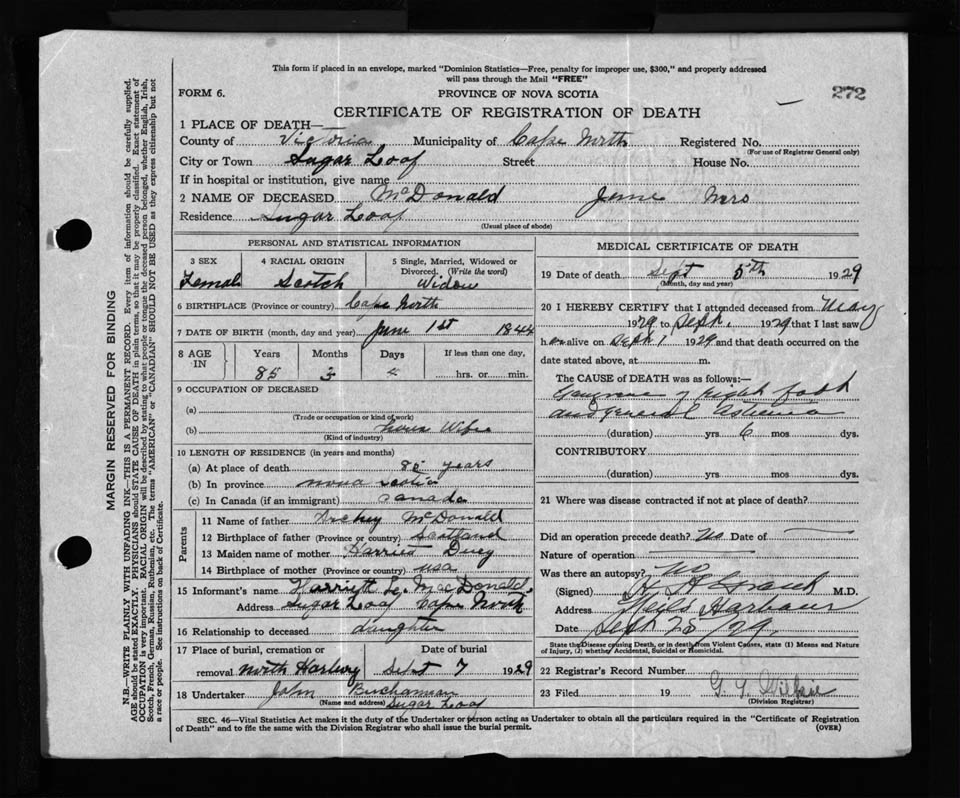 This form if placed in an envelope, marked "Dominion Statistics—Free, penalty for improper use, $300," and properly addressed
will pass through the Mail "FREE"
FORM 6.
PROVINCE OF NOVA SCOTIA
272
CERTIFICATE OF REGISTRATION OF DEATH
1 PLACE OF DEATH—
County of Victoria Municipality of Cape North Registered No.
(For use of Registrar General only)
City or Town Sugar Loaf Street House No.
If in hospital or institution, give name
2 NAME OF DECEASED McDonald Jane Mrs
Residence Sugar Loaf
(Usual place of abode)
PERSONAL AND STATISTICAL INFORMATION
3 SEX 4 RACIAL ORIGIN 5 Single, Married, Widowed or
Divorced. (Write the word)
Femal Scotch Widow
6 BIRTHPLACE (Province or country) Cape North
7 DATE OF BIRTH (month, day and year) June 1st 1844
8 AGE IN Years Months Days If less than one day,
85 3 hrs. or min.
9 OCCUPATION OF DECEASED
(a)
(Trade or occupation or kind of work)
(b) House Wife
(Kind of industry)
10 LENGTH OF RESIDENCE (in years and months)
(a) At place of death 85 years
(b) In province nova scotia
(c) In Canada (if an immigrant) canada
Parents
11 Name of father Archy McDonald
12 Birthplace of father (Province or country) Scotland
13 Maiden name of mother Harriet
14 Birthplace of mother (Province or country) usa
15 Informant's name Harriett MacDonald
Address Sugar Loaf Cape North
16 Relationship to deceased daughter
17 Place of burial, cremation or Date of burial
removal North Harbour Sept 7 1929
18 Undertaker John Buchannan
(Name and address) Sugar Loaf
MEDICAL CERTIFICATE OF DEATH
19 Date of death Sept 5th 1929
(Month, day and year)
20 I HEREBY CERTIFY that I attended deceased from May
1929 to Sept. 1929 that I last saw
her alive on Sept 1 1929 and that death occurred on the
date stated above, at m.
The CAUSE OF DEATH was as follows:—
Gangrene of right foot
and general
(duration) yrs 6 mos dys.
CONTRIBUTORY
(duration) yrs mos dys.
21 Where was disease contracted if not at place of death?
Did an operation precede death? No Date of
Nature of operation
Was there an autopsy? No
(Signed) M.D.
Address Neils Harbour
Date Sept 25/29
State the Disease causing Death, or in death from Violent Causes, state (1) Means and Nature
of Injury, (2) whether Accidental, Suicidal or Homicidal.
22 Registrar's Record Number
23 Filed 19
(Division Registrar)
SEC. 46—Vital Statistics Act makes it the duty of the Undertaker or person acting as Undertaker to obtain all the particulars required in the "Certificate of Registration
of Death" and to file the same with the Division Registrar who shall issue the burial permit.
(OVER)
MARGIN RESERVED FOR BINDING
N.B.—WRITE PLAINLY WITH UNFADING INK—THIS IS A PERMANENT RECORD. Every item of information should be carefully supplied.
AGE should be stated EXACTLY. PHYSICIANS should STATE CAUSE OF DEATH in plain terms, so that it may be properly classified. Exact statement of
OCCUPATION is very important. RACIAL ORIGIN will be described by stating to what people or tongue the deceased person belonged, whether English, Irish,
Scotch, French, German, Russian, Ruthenian, etc. The terms "AMERICAN" or "CANADIAN" SHOULD NOT BE USED as they express citizenship but not
a race or people. See instructions on back of Certificate.